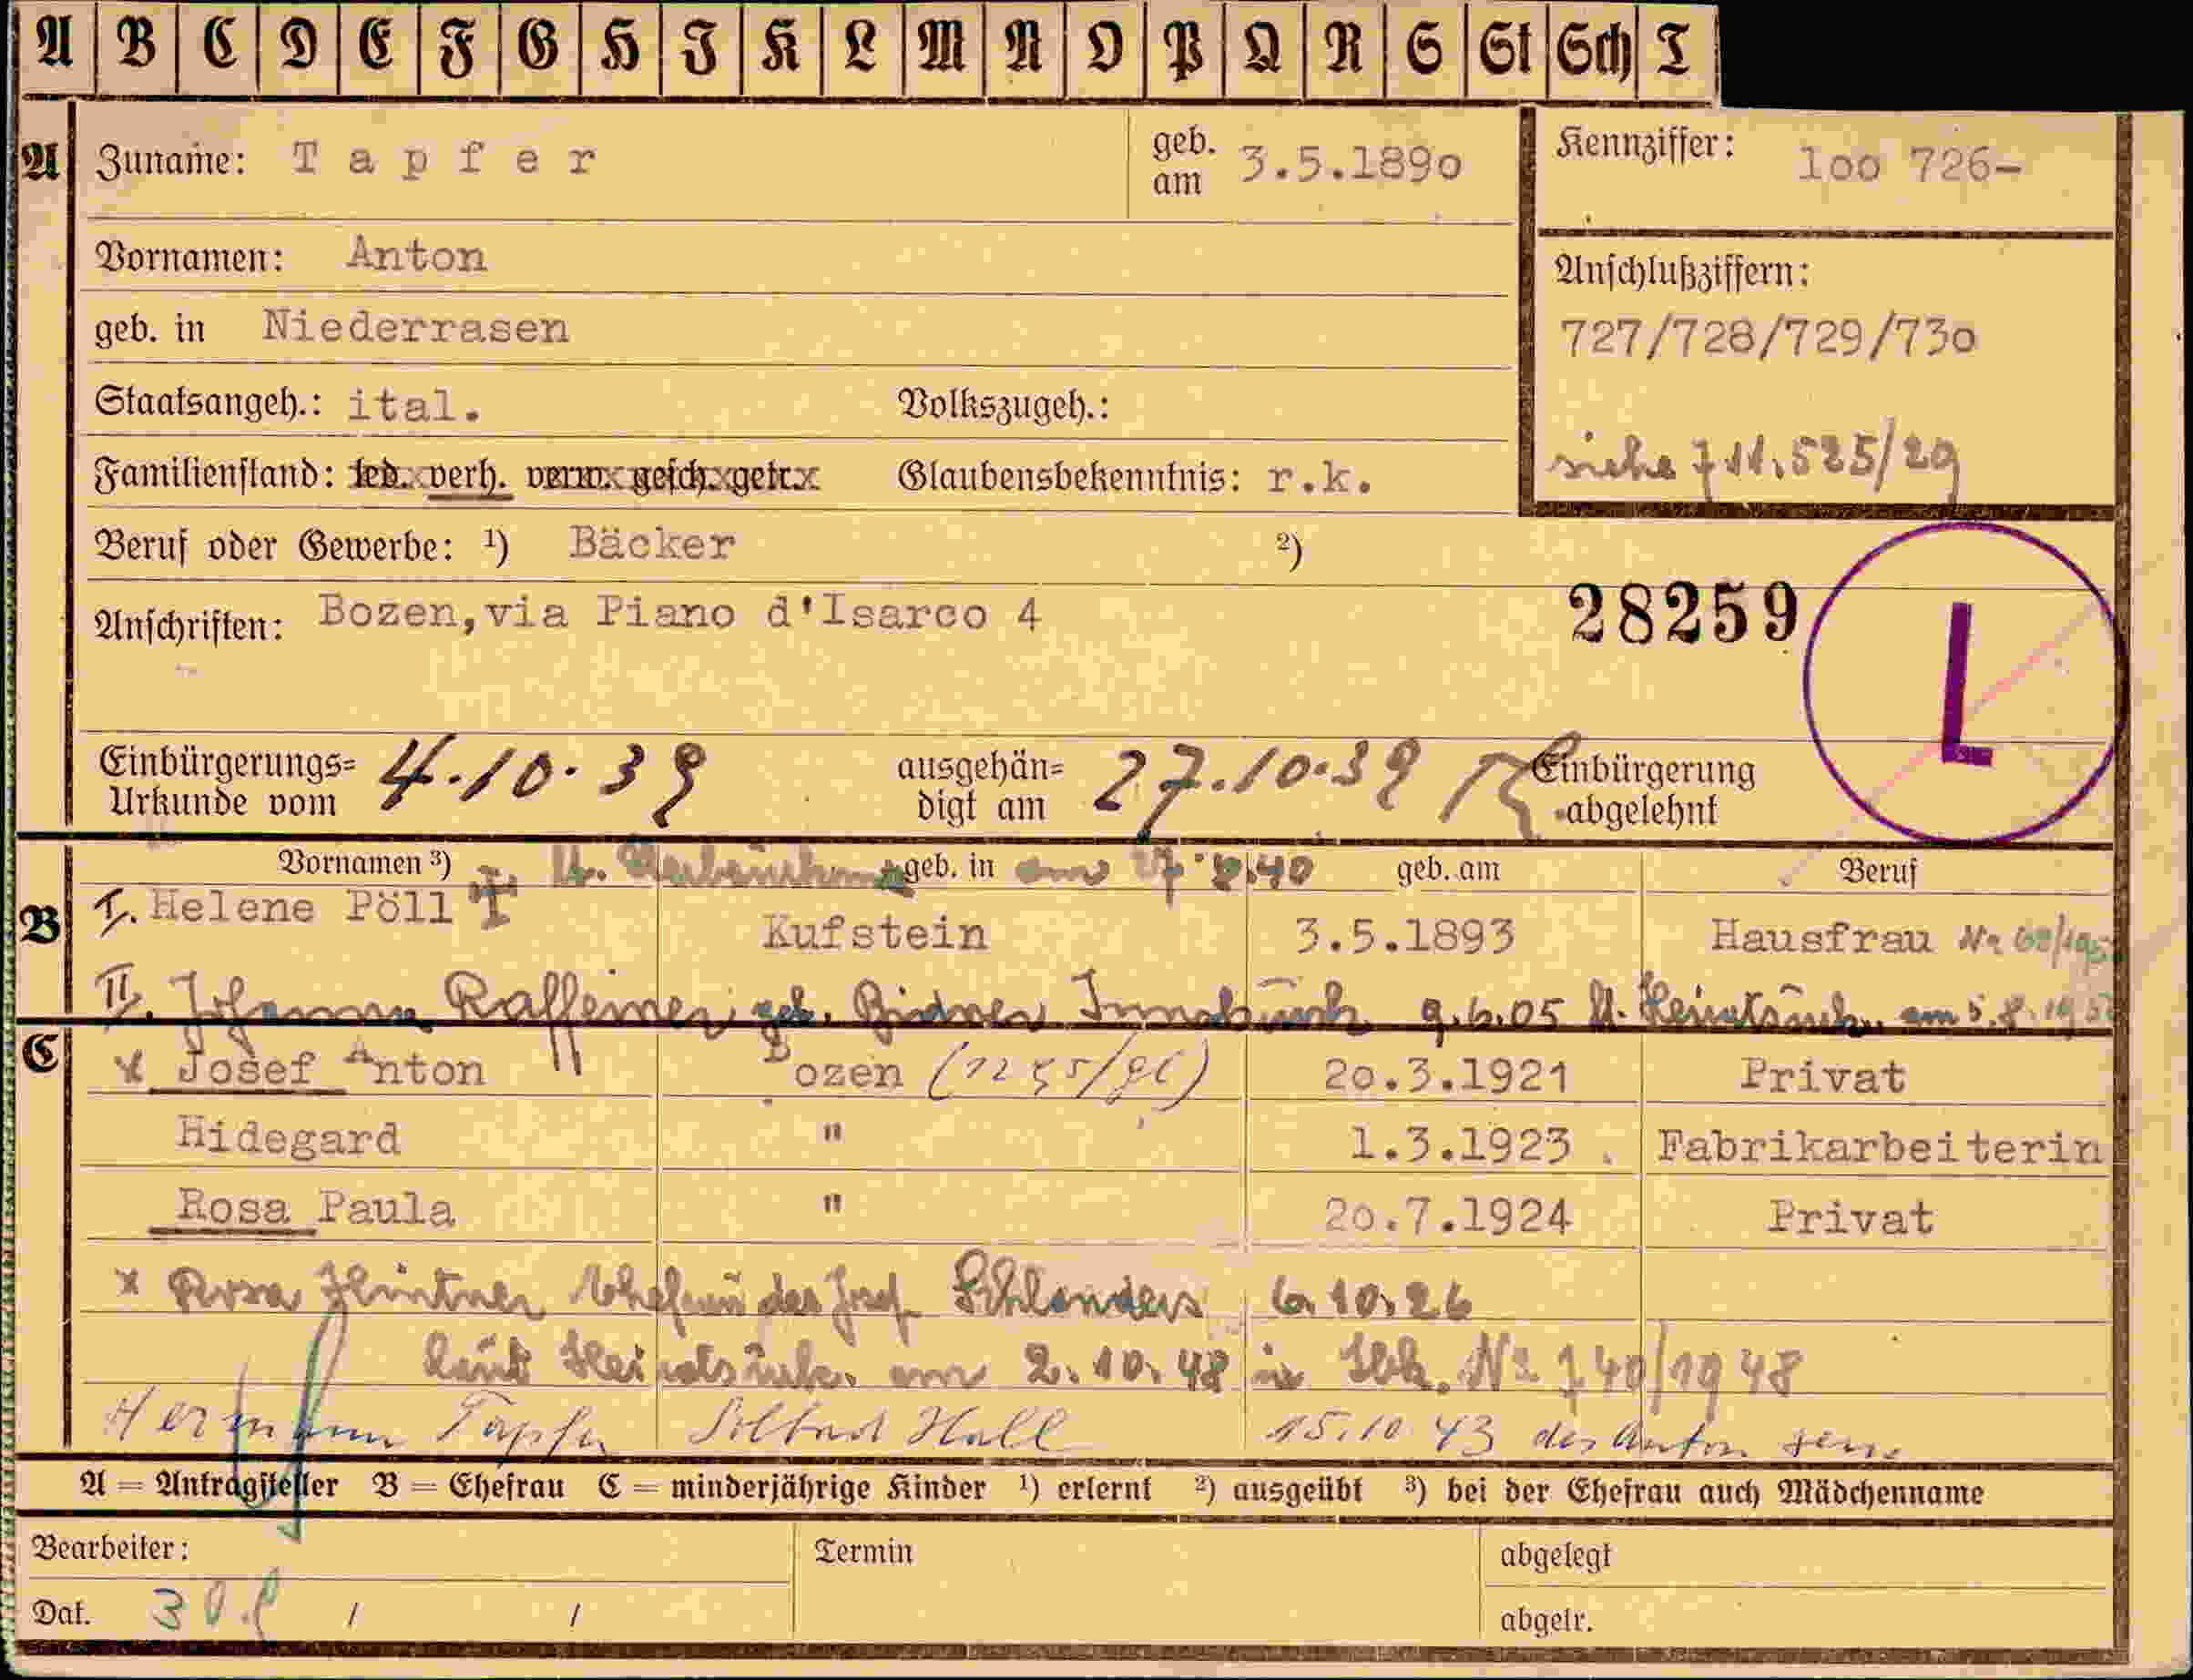 A B C D E F G H J K L M N O P Q R S St Sch T
A Zuname: Tapfer geb. am 3.5.189o Kennziffer: 1oo 726-
Vornamen: Anton
Anschlußziffern:
geb. in Niederrasen 727/728/729/73o
Staatsangeh.: ital. Volkszugeh.:
siehe 711.525/29
Familienstand: led. verh. verw. gesch. getr. Glaubensbekenntnis: r.k.
Beruf oder Gewerbe: ¹) Bäcker ²)
Anschriften: Bozen,via Piano d'Isarco 4 28259
L
Einbürgerungs= Urkunde vom 4.10.39 ausgehän= digt am 27.10.39 Einbürgerung abgelehnt
Vornamen ³) geb. in am geb. am Beruf
B I. Helene Pöll Kufstein 3.5.1893 Hausfrau
II. Johanna Raffeiner geb. Innsbruck 9.6.05 lt. Heiratsurk. am 5.8.
C x Josef Anton Bozen 2o.3.1921 Privat
Hidegard " 1.3.1923 Fabrikarbeiterin
Rosa Paula " 2o.7.1924 Privat
x Rosa Ehefrau des Josef Schlanders 6.10.26
laut Heiratsurk. am 2.10.48 in Ibk. Nr 740/1948
Hermann Tapfer Solbad Hall 15.10.43 des Anton
A = Antragsteller B = Ehefrau C = minderjährige Kinder ¹) erlernt ²) ausgeübt ³) bei der Ehefrau auch Mädchenname
Bearbeiter: Termin abgelegt
Dat. 30. / / abgetr.